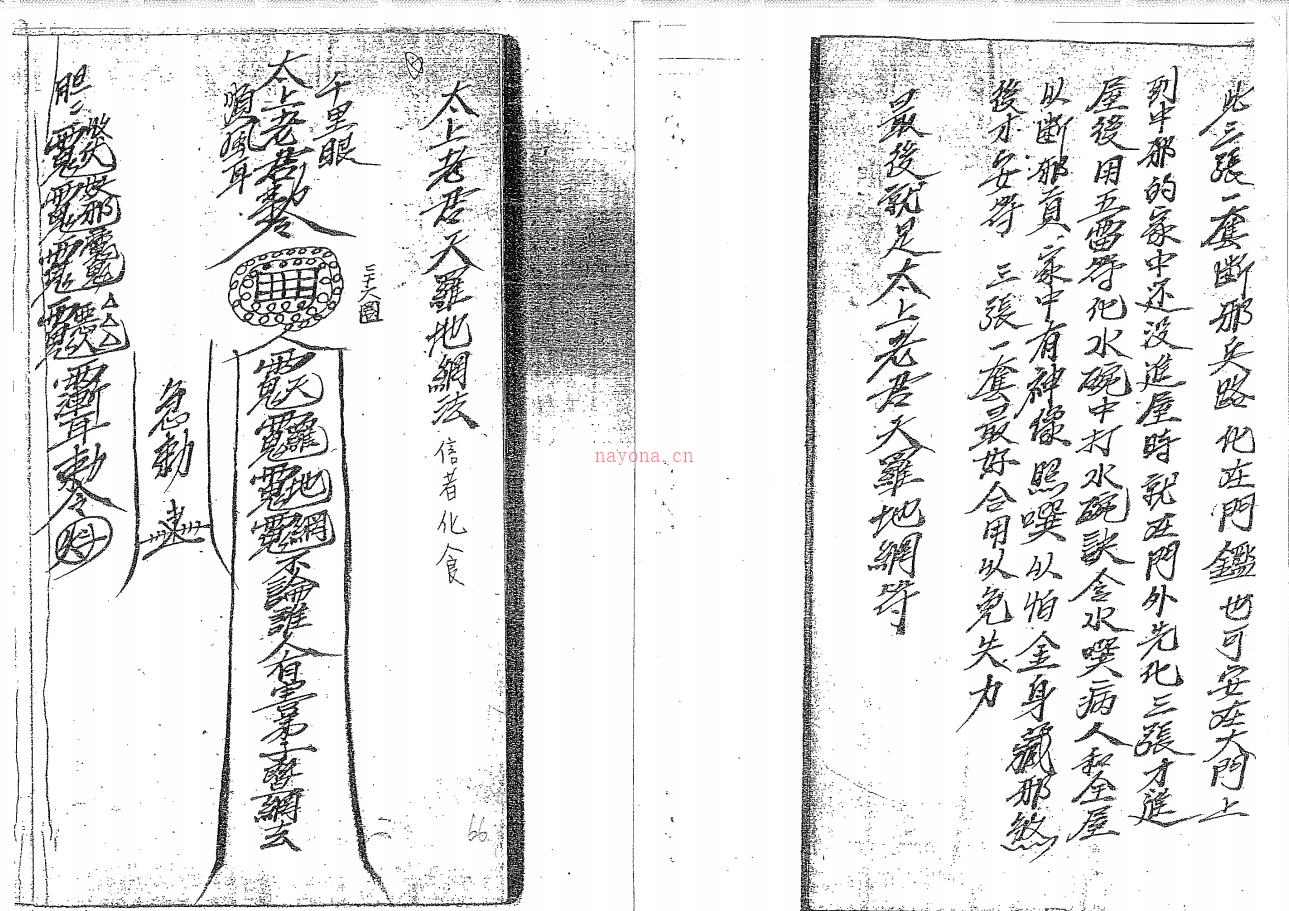 此三張一套斷邪兵路化在門鑑也可安在大門上
到中邪的家中还没進屋時就在門外先化三張才進
屋後用五雷符化水碗中打水碗訣含水噀病人和全屋
以斷邪貢家中有神像照噀以怕金身藏邪煞
後才安符 三張一套最好合用以免失力
最後就是太上老君天羅地網符
太上老君天羅地網法 信者化食
千里眼
太上老君勅令
順風耳
天羅地網不論誰人有害弟子
急勅
勅令
66
nayona.cn